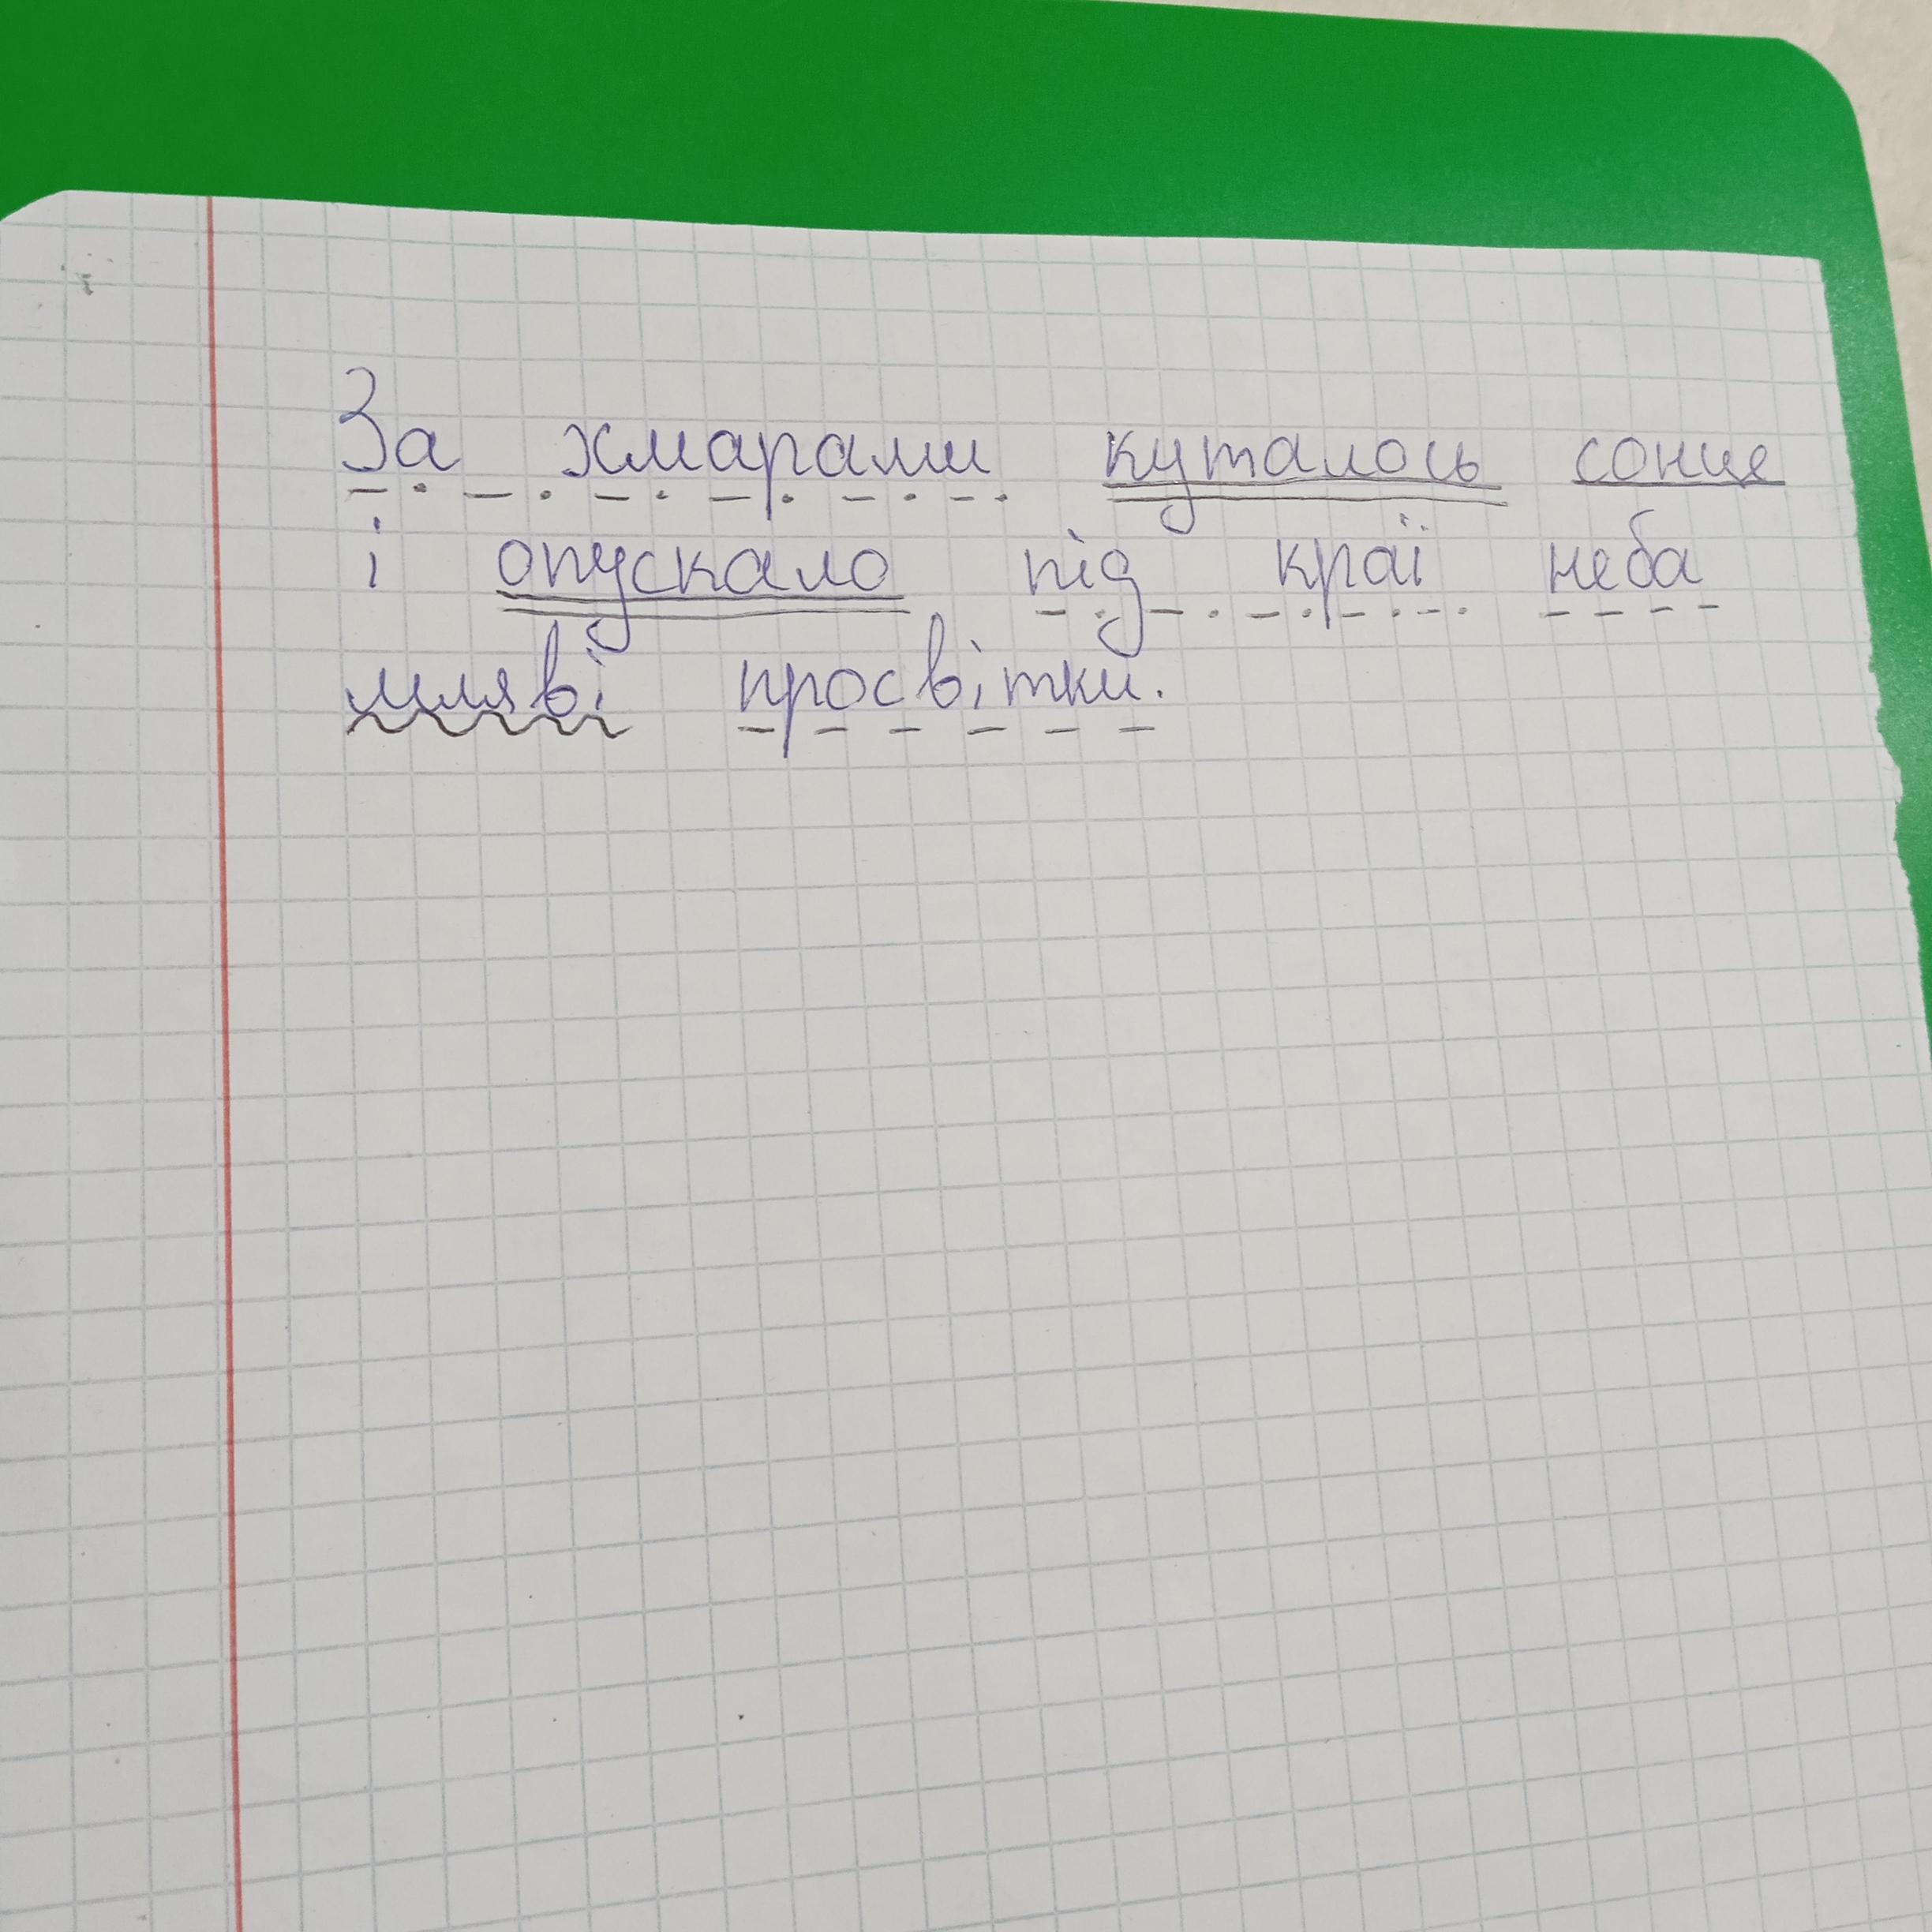 За хмарами куталось сонце
і опускало під краї неба
мляві просвітки.